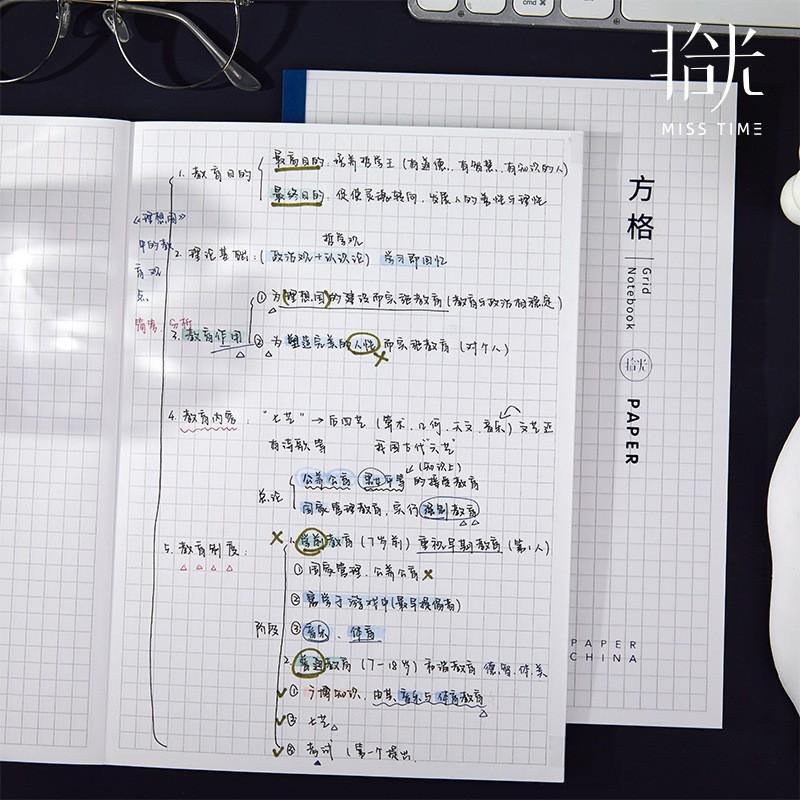 拾光
MISS TIME
cmd ⌘
方格
Grid
Notebook
拾光
PAPER
PAPER
CHINA
《理想国》
中的教
育观
点
简答、分析
1. 教育目的
最高目的：培养哲学王（有道德、有智慧、有知识的人）
最终目的：促使灵魂转向，发展人的善性与理性
哲学观
2. 理论基础：（政治观+认识论） 学习即回忆
3. 教育作用
① 为理想国的建设而实施教育（教育与政治相稳定）
② 为塑造完美的人性而实施教育（对个人）
4. 教育内容： "七艺" → 后四艺（算术、几何、天文、音乐）文艺还
有诗歌等 我国古代"六艺"
（知识上）
总论
公养公育 男女平等的接受教育
国家管理教育，实行强制教育
5. 教育制度：
阶段
1. 学前教育（7岁前）重视早期教育（第1人）
① 国家管理，公养公育
② 寓学于游戏中（最早提倡者）
③ 音乐、体育
2. 普通教育（7-18岁）和谐教育 德、智、体、美
① 广博知识，尤其音乐与体育教育
② 七艺
③ 考试（第一个提出